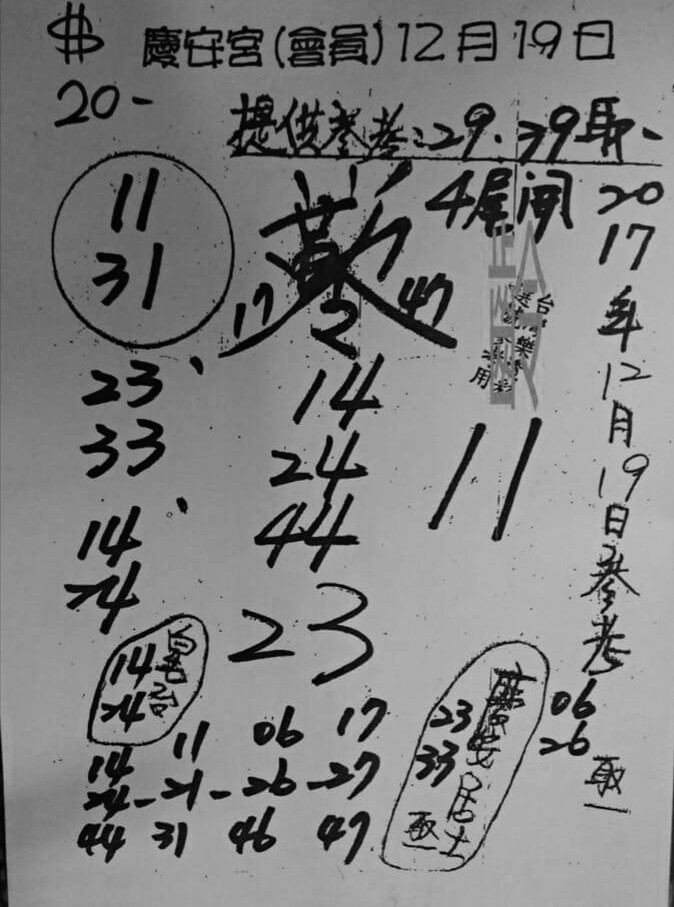 $ 慶安宮(會員)12月19日
20-
提供參考:29.39取、
4尾開
11
31
17 2 47
23、
33
14
24
44
11
14
24
23
14
24
14 11 06 17
24-21-26-27
44 31 46 47
23
33
慶安居士
取
2017年12月19日參考
06
26
取一